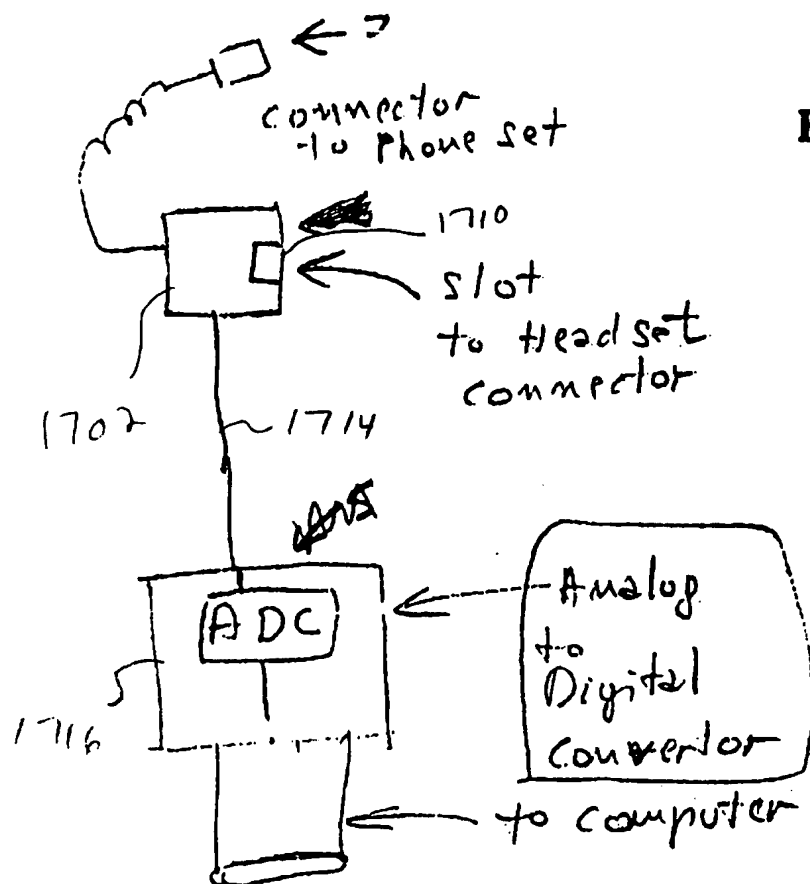 connector
to Phone set
1710
Slot
to Headset
connector
1702
1714
ADC
Analog
to
Digital
Convertor
1716
to computer